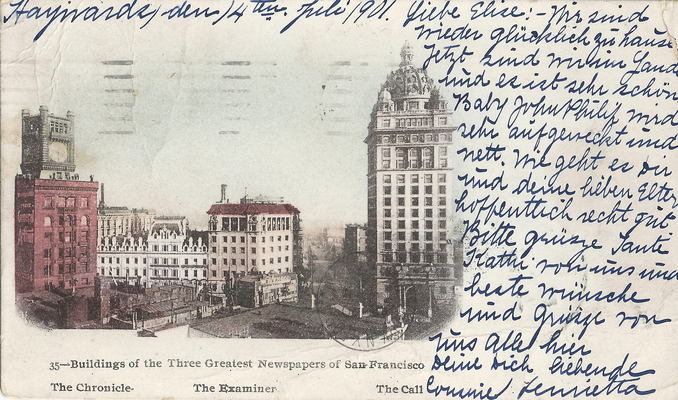 Haywards, den 14ten Juli 1901.
Liebe Elise:- Wir sind
wieder glücklich zu hause
Jetzt sind wir im Lande
und es ist sehr schön
Baby John Philip wird
sehr aufgeweckt und
nett. Wie geht es Dir
und deine lieben Elter
hoffentlich recht gut
Bitte grüsze Tante
Kathi von uns und
beste wünsche
und Grüsze von
uns Alle hier
Deine Dich liebende
Henrietta
35—Buildings of the Three Greatest Newspapers of San Francisco
The Chronicle- The Examiner The Call